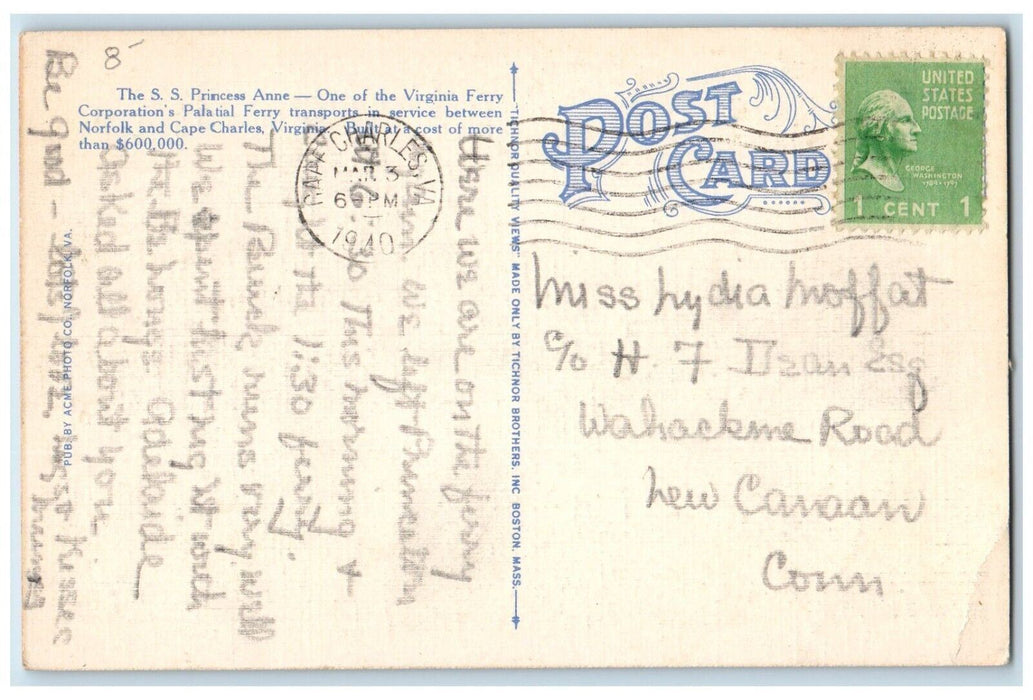 8
The S. S. Princess Anne — One of the Virginia Ferry
Corporation's Palatial Ferry transports in service between
Norfolk and Cape Charles, Virginia. Built at a cost of more
than $600,000.
PUB. BY ACME PHOTO CO., NORFOLK, VA.
"TICHNOR QUALITY VIEWS" MADE ONLY BY TICHNOR BROTHERS, INC. BOSTON, MASS.
POST
CARD
CAPE CHARLES, VA.
MAR 3
6 PM
1940
UNITED
STATES
POSTAGE
GEORGE
WASHINGTON
1789-1797
1 CENT 1
Here we are on the ferry
we left
30 this morning +
the 1:30 ferry.
The Buick runs very well
We spent last night with
the
asked all about you
Be good - lots love + kisses
Mummy
Miss Lydia Moffat
c/o H. F. Esq
Wahackme Road
New Canaan
Conn